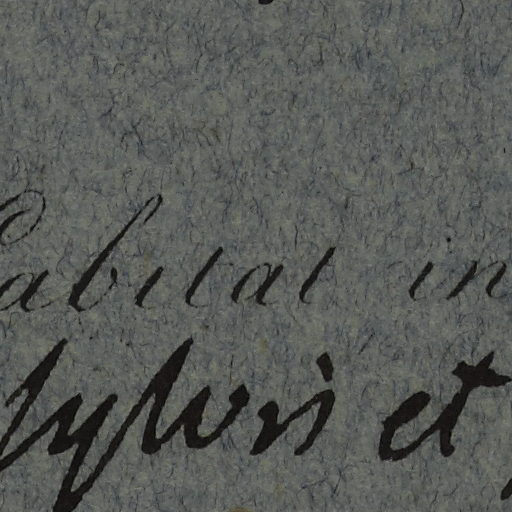 abitat in
sylvis et